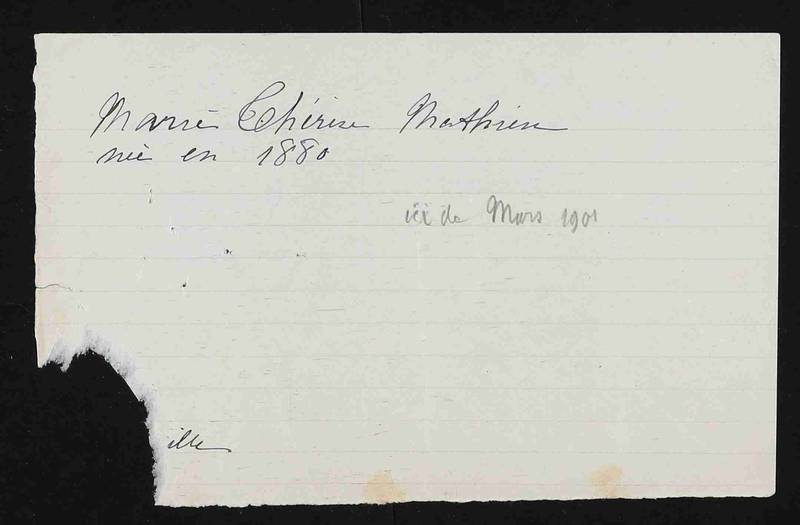 Marie Thérèse Mathieu
née en 1880
ici de Mars 1901
ille